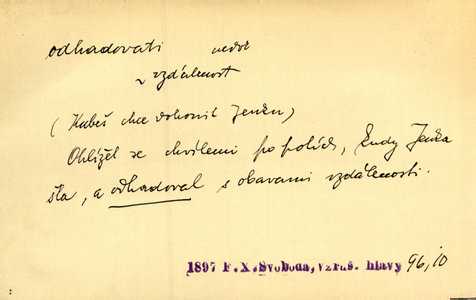 odhadovati nedok
vzdálenost
(Kubeš chce dohonit Jenku)
Ohlížel se chvílemi po polích, kudy Jenka
šla, a odhadoval s obavami vzdálenosti.
1897 F.X.Svoboda, Vzruš. hlavy 96,10